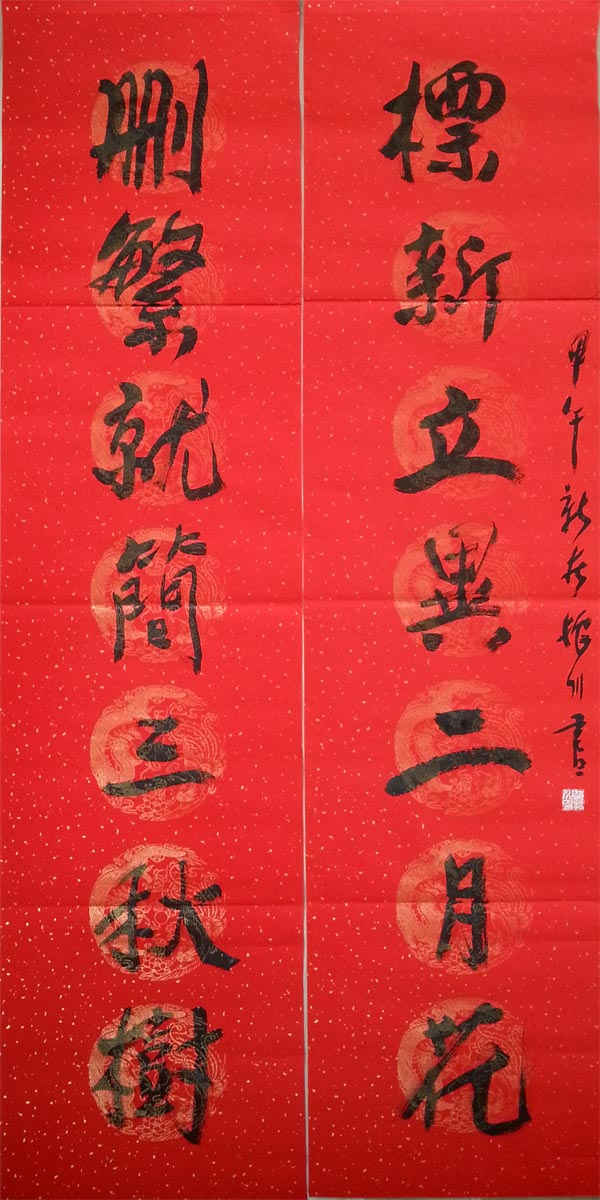 標新立異二月花
甲午新春振川書
刪繁就簡三秋樹